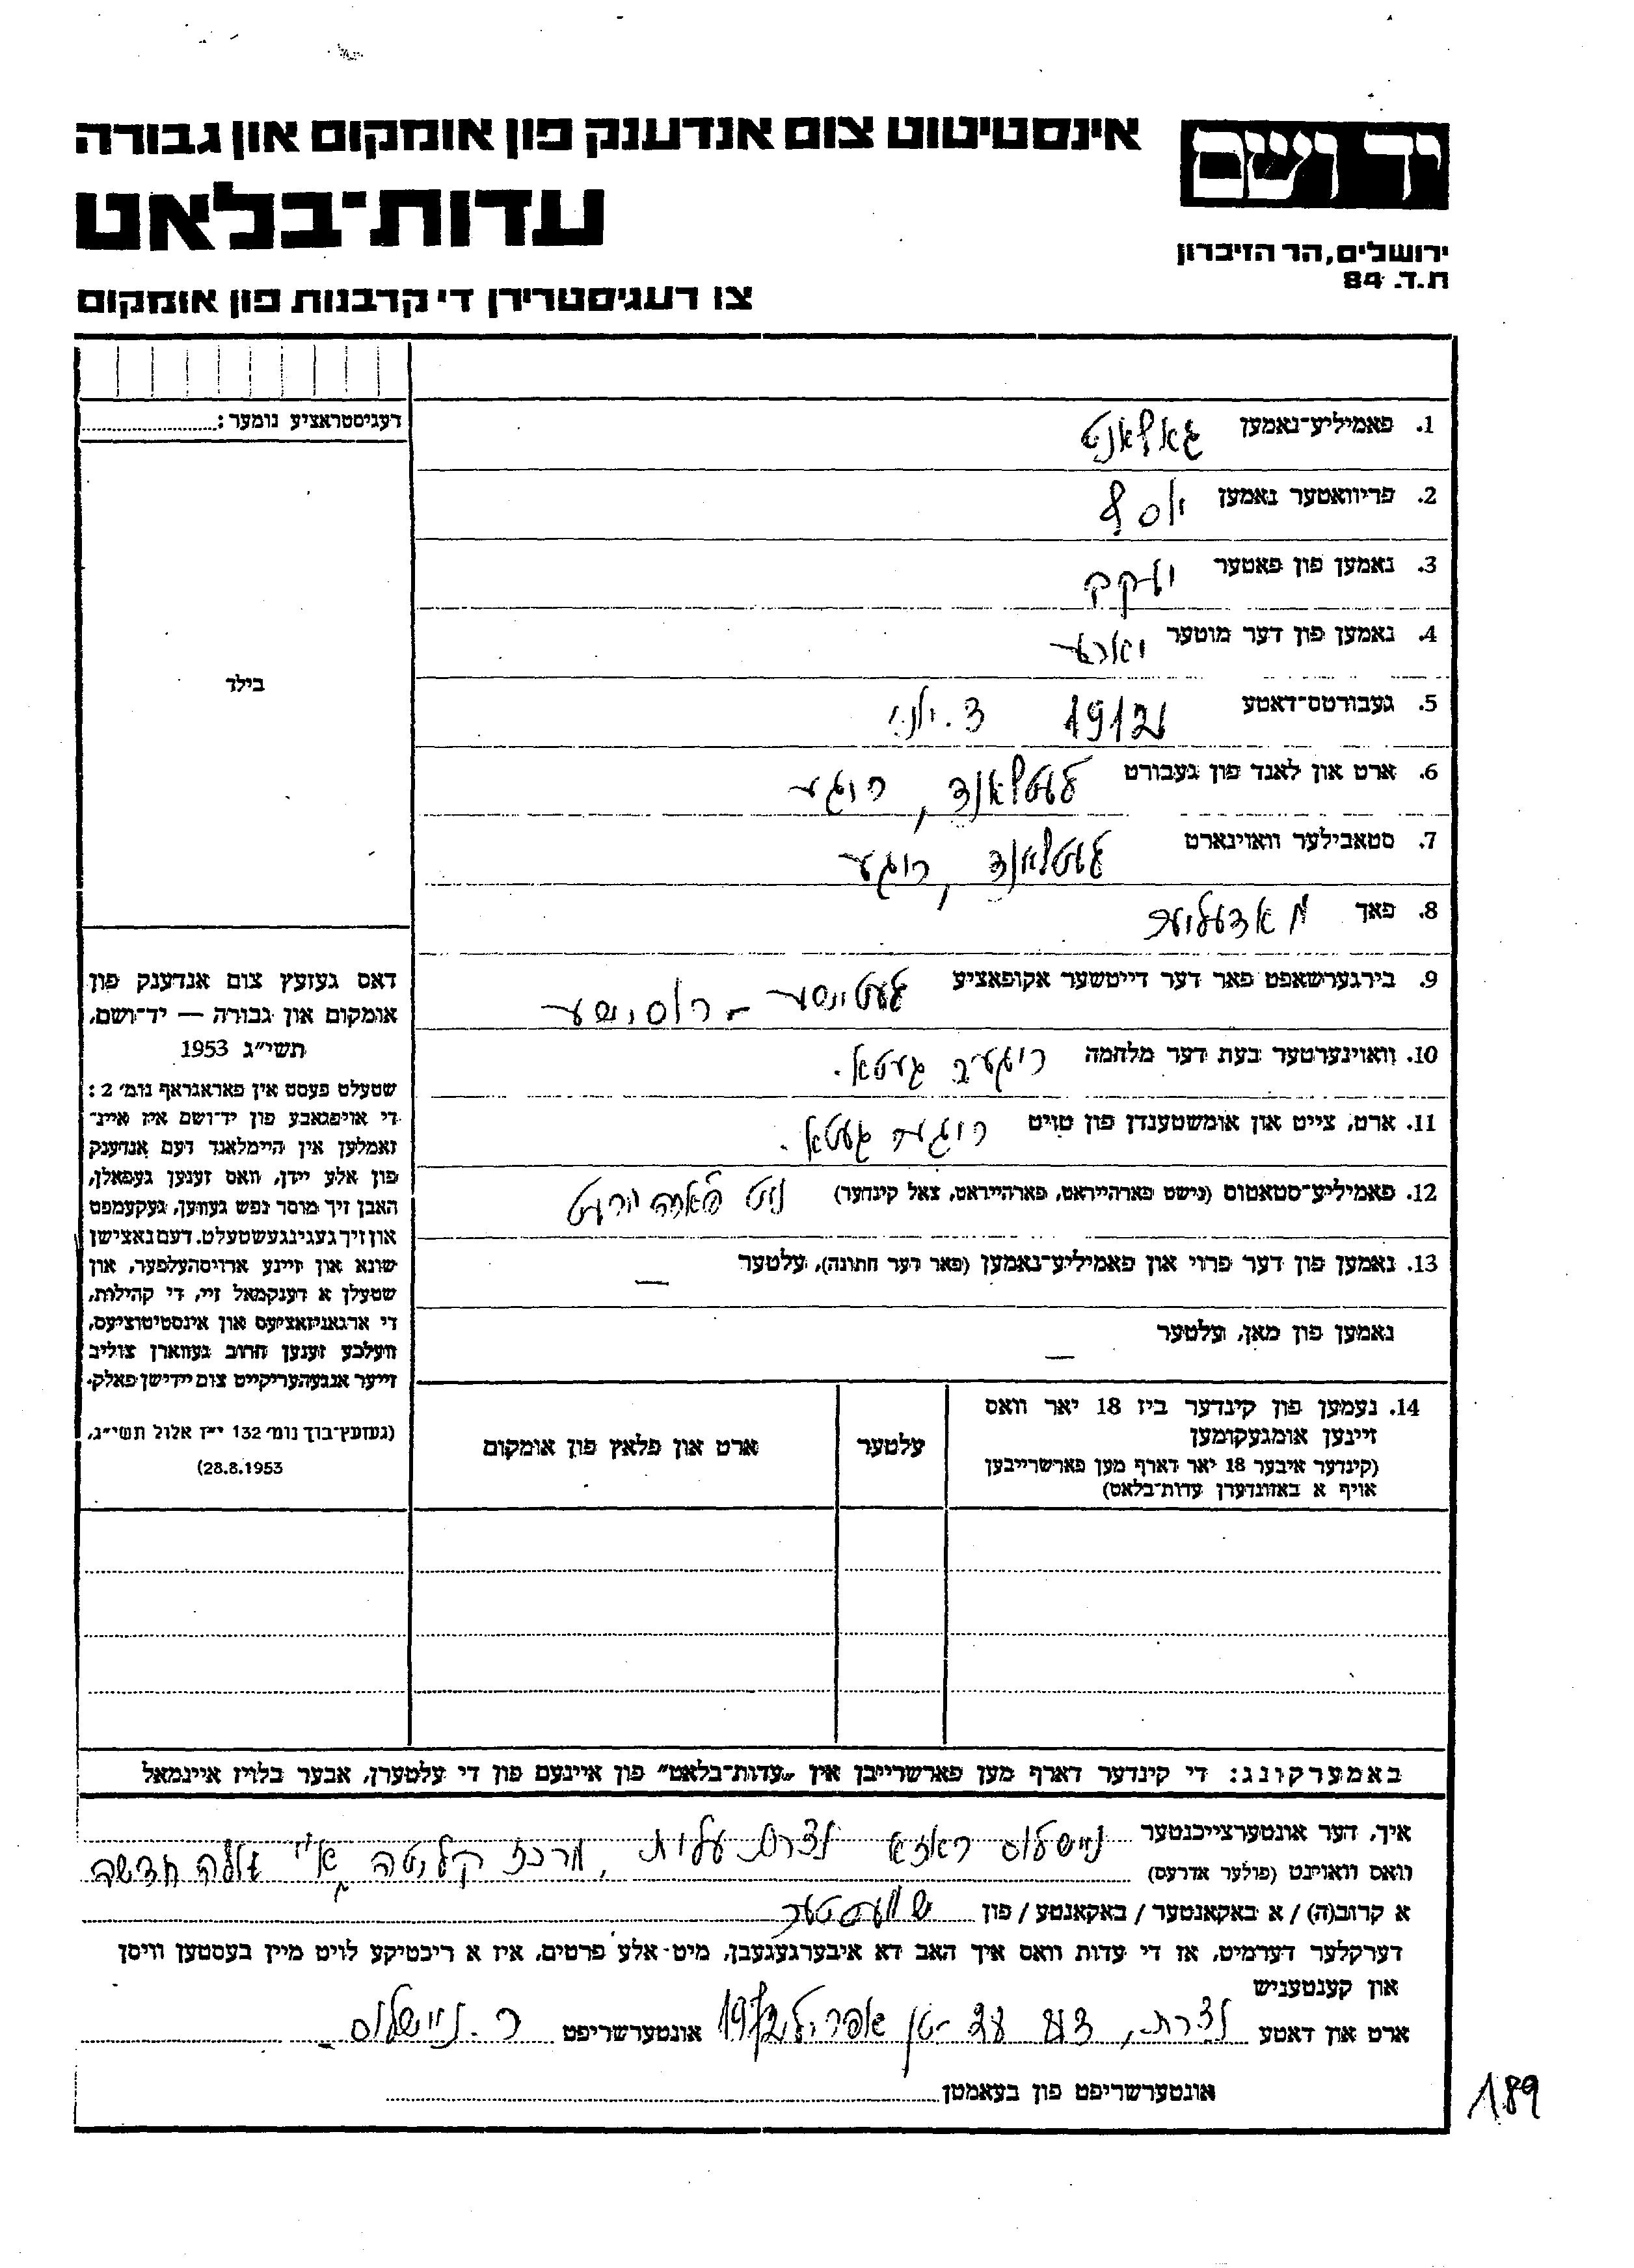 אינסטיטוט צום אנדענק פון אומקום און גבורה
יד ושם
עדות־בלאט
ירושלים, הר הזיכרון
ת.ד. 84
צו רעגיסטרירן די קרבנות פון אומקום
רעגיסטראציע נומער:
1. פאמיליע־נאמען גאלאנט
2. פריוואטער נאמען יוסף
3. נאמען פון פאטער יעקב
4. נאמען פון דער מוטער
בילד
5. געבורטס־דאטע 1912 3. יוני
6. ארט און לאנד פון געבורט לעטלאנד, ריגע
7. סטאבילער וואוינארט לעטלאנד, ריגע
8. פאך
9. בירגערשאפט פאר דער דייטשער אקופאציע לעטישע - רוסישע
10. וואוינערטער בעת דער מלחמה ריגער געטא.
11. ארט, צייט און אומשטענדן פון טויט ריגער געטא.
12. פאמיליע־סטאטוס (נישט פארהייראט, פארהייראט, צאל קינדער) ניט פארהיירעט
13. נאמען פון דער פרוי און פאמיליע־נאמען (פאר דער חתונה), עלטער —
נאמען פון מאן, עלטער —
דאס געזעץ צום אנדענק פון
אומקום און גבורה — יד־ושם,
תשי״ג 1953
שטעלט פעסט אין פאראגראף נומ׳ 2:
די אויפגאבע פון יד־ושם איז איינ־
זאמלען אין היימלאנד דעם אנדענק
פון אלע יידן, וואס זענען געפאלן,
האבן זיך מוסר נפש געווען, געקעמפט
און זיך געגינגעשטעלט. דעם נאצישן
שונא און זיינע ארויסהעלפער, און
שטעלן א דענקמאל זיי, די קהילות,
די ארגאניזאציעס און אינסטיטוציעס,
וועלכע זענען חרוב געווארן צוליב
זייער אנגעהעריקייט צום יידישן פאלק.
(געזעץ־בוך נומ׳ 132 י״ז אלול תשי״ג,
28.8.1953)
14. נעמען פון קינדער ביז 18 יאר וואס
זיינען אומגעקומען
(קינדער איבער 18 יאר דארף מען פארשרייבן
אויף א באזונדערן עדות־בלאט)
עלטער
ארט און פלאץ פון אומקום
באמערקונג: די קינדער דארף מען פארשרייבן אין „עדות־בלאט״ פון איינעם פון די עלטערן, אבער בלויז איינמאל
איך, דער אונטערצייכנטער ניישלוס ראזא נצרת עלית, מרכז קליטה א׳ עולה חדשה
וואס וואוינט (פולער אדרעס)
א קרוב(ה) / א באקאנטער / באקאנטע / פון שוועסטער
דערקלער דערמיט, אז די עדות וואס איך האב דא איבערגעגעבן, מיט אלע פרטים, איז א ריכטיקע לויט מיין בעסטען וויסן
און קענטעניש
ארט און דאטע נצרת, דעם אפריל 1972 אונטערשריפט ר. ניישלוס
אונטערשריפט פון בעאמטן
189